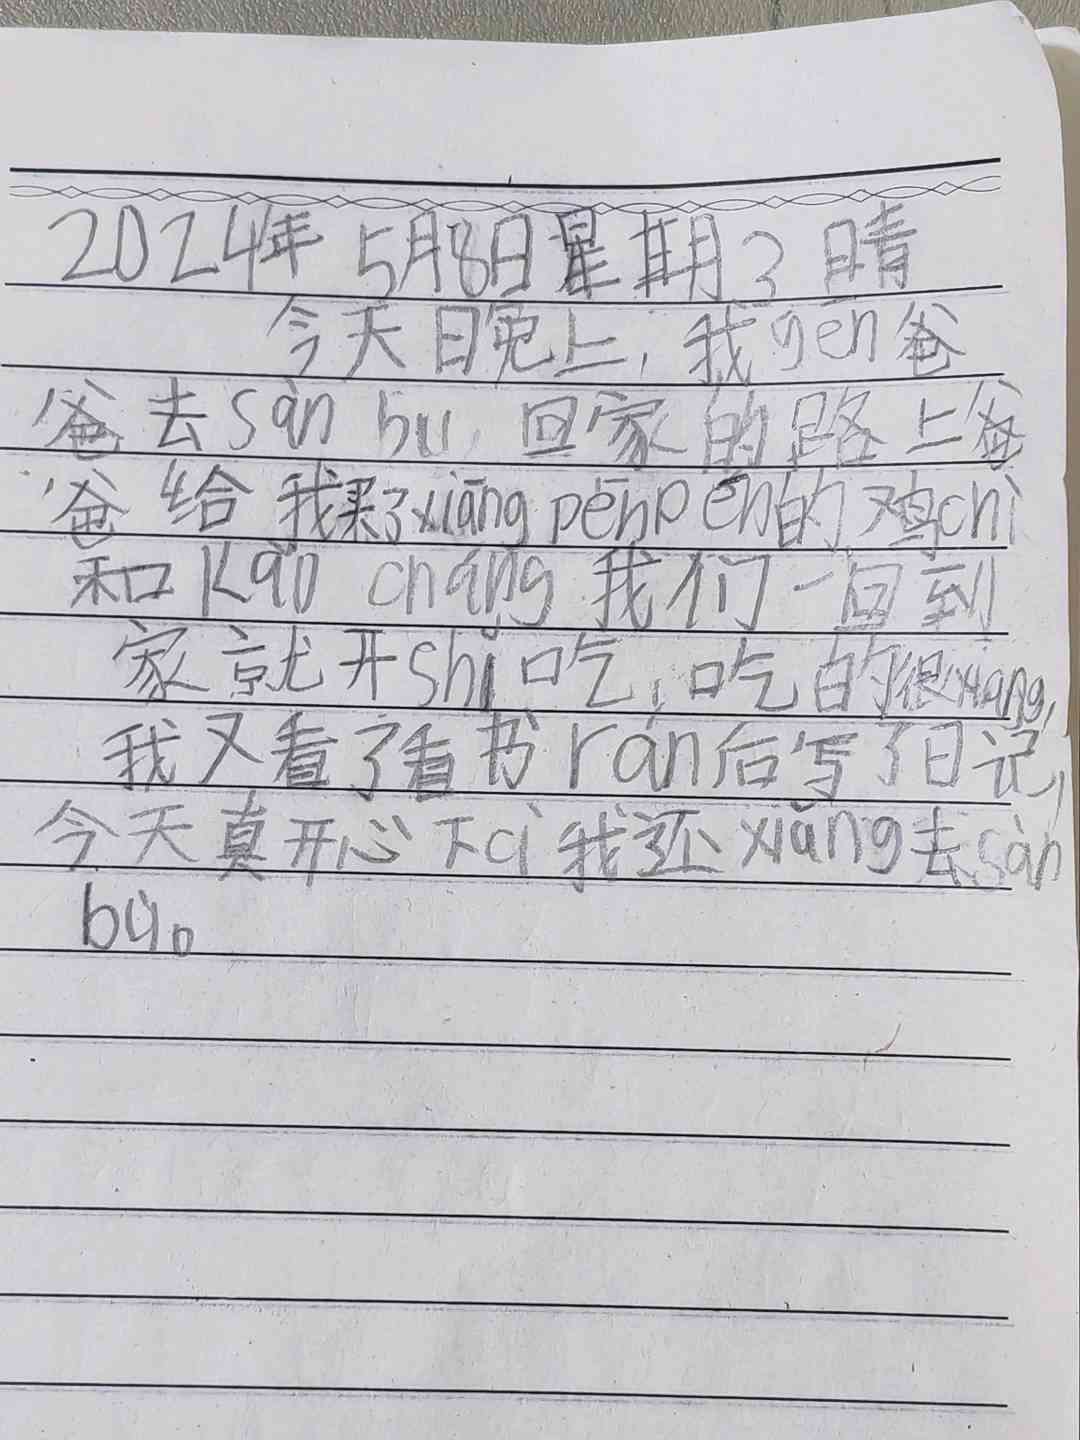 2024年 5月8日星期3 晴
今天日免上,我gēn爸
爸去sàn bu,回家的路上爸
爸给我买了xiāng pēnpēn的鸡chì
和kǎo cháng我们一回到
家就开shǐ吃,吃的很xiang,
我又看了看书rán后写了日记,
今天真开心下cì我还xiǎng去sàn
bù。